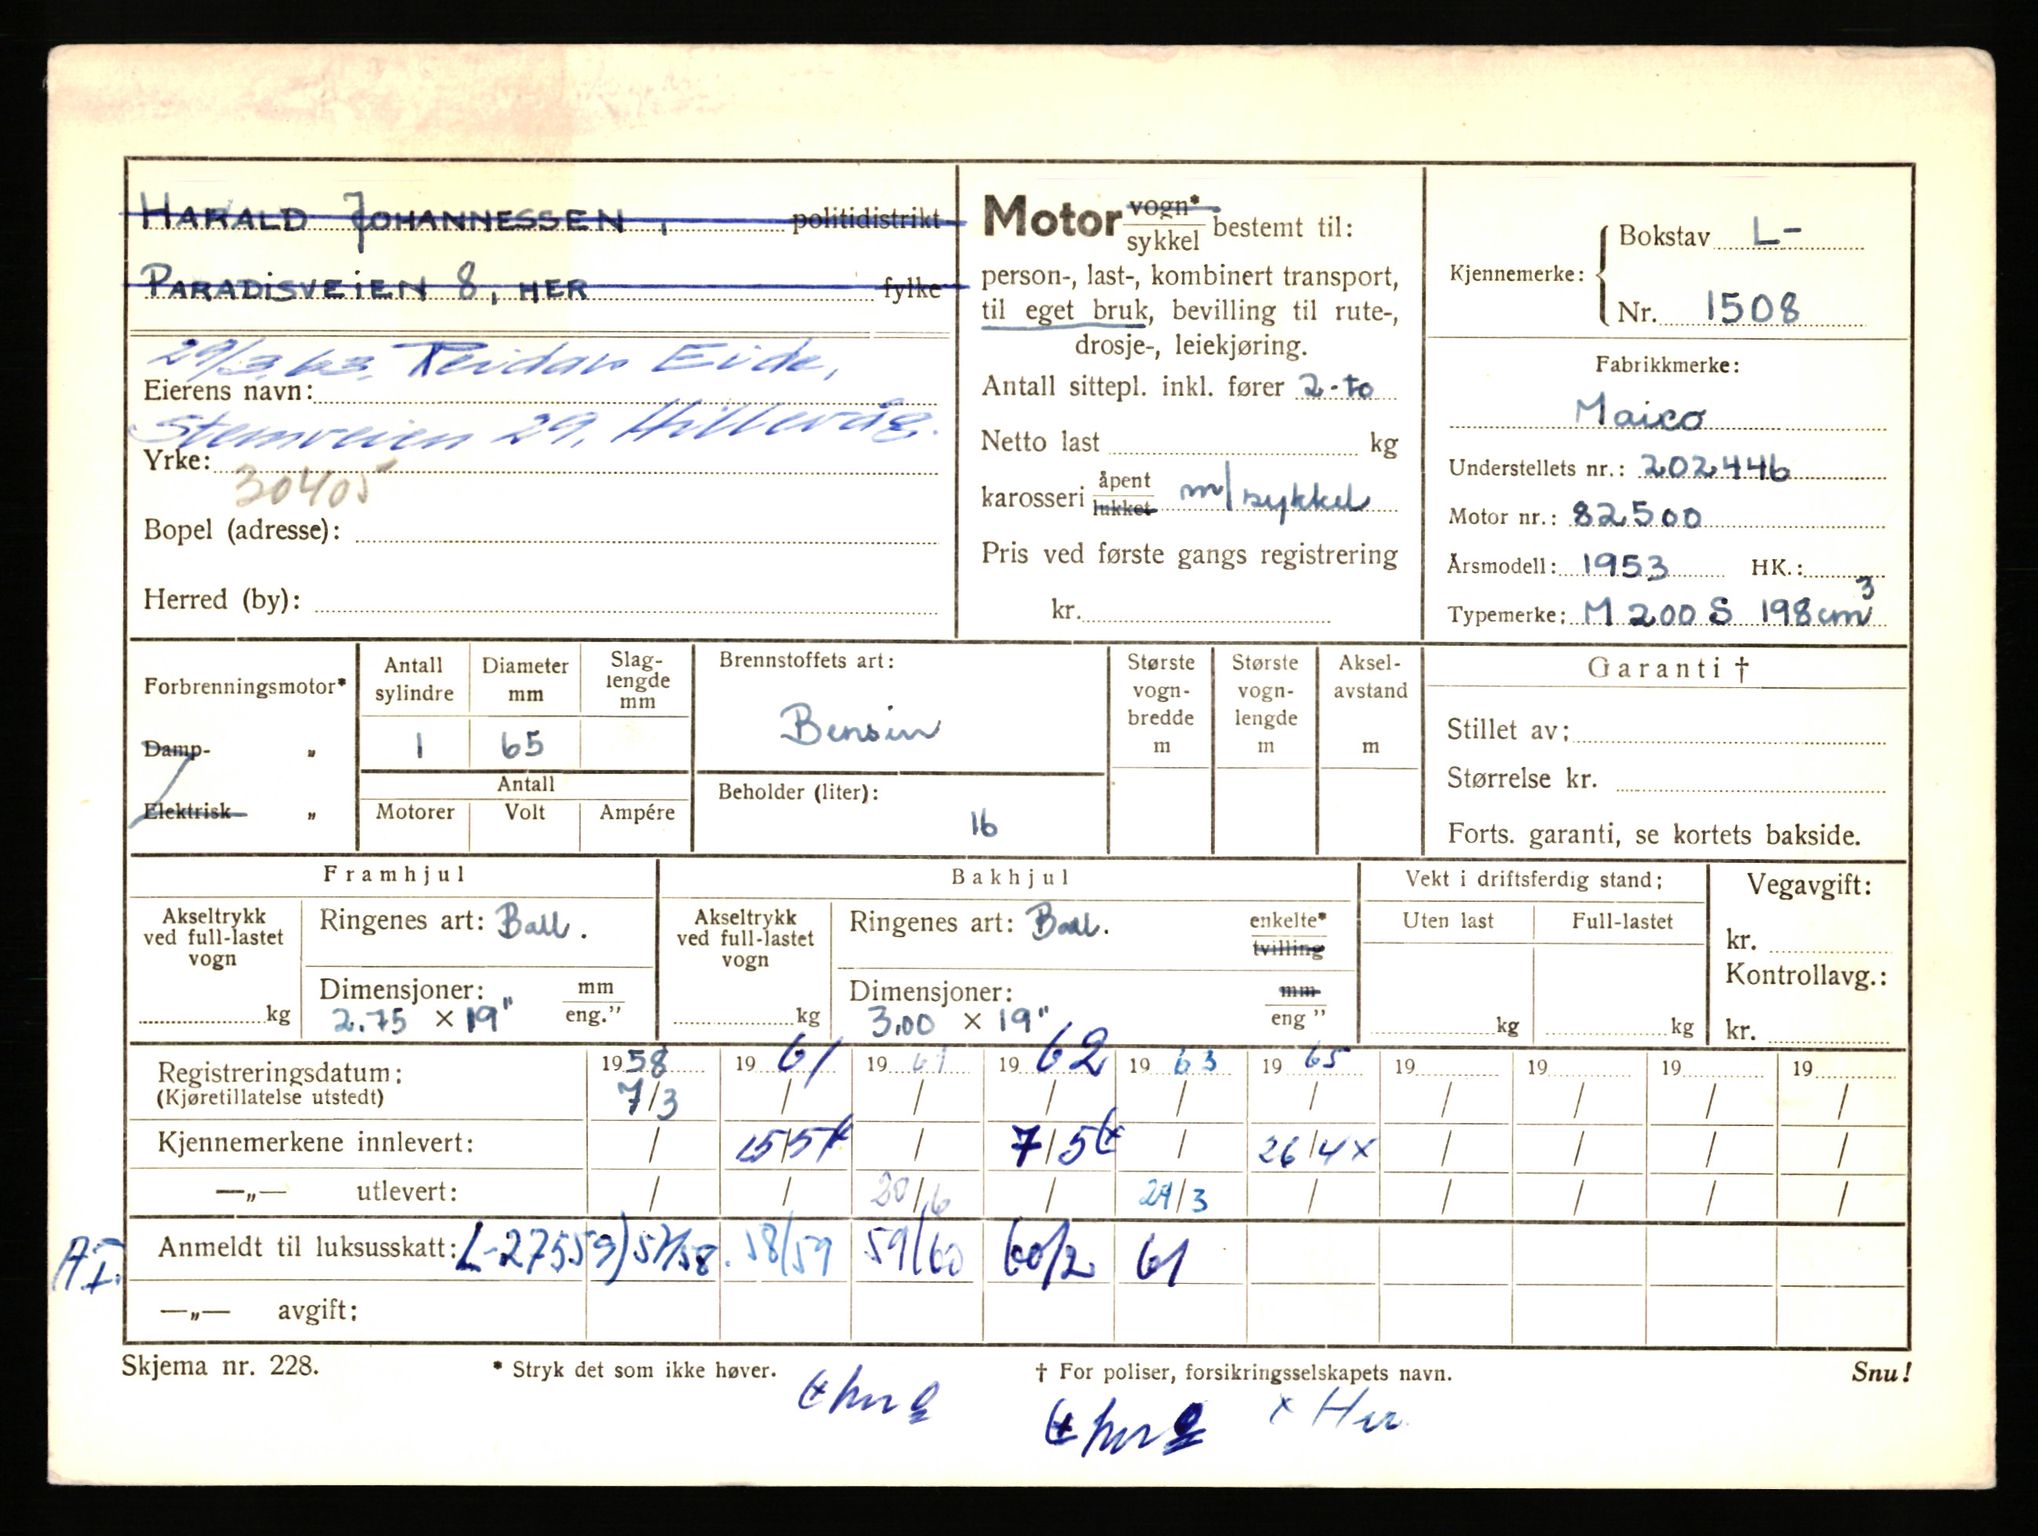 HARALD JOHANNESSEN, politidistrikt
PARADISVEIEN 8, HER fylke
29/3.63. Reidar Eide,
Eierens navn:
Stemveien 29, Hillevåg.
Yrke:
30405
Bopel (adresse):
Herred (by):
Motor vogn* sykkel bestemt til:
person-, last-, kombinert transport,
til eget bruk, bevilling til rute-,
drosje-, leiekjøring.
Antall sittepl. inkl. fører 2-to
Netto last kg
karosseri åpent lukket m/sykkel
Pris ved første gangs registrering
kr.
Kjennemerke:
Bokstav L-
Nr. 1508
Fabrikkmerke:
Maico
Understellets nr.: 202446
Motor nr.: 82500
Årsmodell: 1953 HK.:
Typemerke: M 200 S 198 cm3
Forbrenningsmotor*
Damp- „
Elektrisk „
Antall sylindre
Diameter mm
Slag-lengde mm
1 65
Antall
Motorer Volt Ampére
Brennstoffets art:
Bensin
Beholder (liter):
16
Største vogn-bredde m
Største vogn-lengde m
Aksel-avstand m
Garanti †
Stillet av:
Størrelse kr.
Forts. garanti, se kortets bakside.
Framhjul
Akseltrykk ved full-lastet vogn
kg
Ringenes art: Ball.
Dimensjoner: mm eng.”
2.75 × 19"
Bakhjul
Akseltrykk ved full-lastet vogn
kg
Ringenes art: Ball. enkelte* tvilling
Dimensjoner: mm eng ”
3.00 × 19"
Vekt i driftsferdig stand:
Uten last Full-lastet
kg kg
Vegavgift:
kr.
Kontrollavg.:
kr.
Registreringsdatum: 1958 1961 1961 1962 1963 1965 19 19 19 19
(Kjøretillatelse utstedt) 7/3 / / / / / / / / /
Kjennemerkene innlevert: / 15/5 / 7/5 / 26/4 x / / / /
—„— utlevert: / / 20/6 / 29/3 / / / / /
AI. Anmeldt til luksusskatt: L-27559) 57/58. 58/59 59/60 60/2 61
—„— avgift:
Skjema nr. 228. * Stryk det som ikke høver. † For poliser, forsikringsselskapets navn. Snu!
x Her